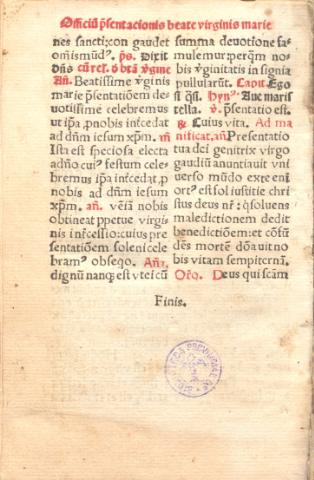 Officiũ p̃sentacionis beate virginis marie
nes sancti: con gaudet
om̃is mũdꝰ. p̃s. Dixit
Dñs cũ reł. ð btã ṽgine
Añ. Beatissime ṽginis
marie p̃sentatiõem de
uotissime celebremus
ut ip̃a ꝓnobis intc̃edat
ad dñm iesum xp̃m. añ
Ista est speciosa electa
a dño cuiꝰ festum cele-
bremus ip̃a intc̃edat ꝓ
nobis ad dñm iesum
xp̃m. añ. veiã nobis
obtineat ꝑpetue virgi
nis int̃cessio: cuius pre
sentatiõem soleni cele
bramꝰ obseqo. Añ
dignũ nanqꝫ est vt ei cũ
summa deuotione fa-
mulemur: per qm̃ no-
bis ṽginitatis insignia
pullularũt. Capit. Ego
st q̃si. Hynꝰ. Aue maris
stella. v̾. p̃sentatio est.
g. Cuius vita. Ad ma
nificat. añ Presentatio
tua dei genitrix virgo
gaudiũ anuntiauit vni
uerso mũdo ex te eni
ortꝰ est sol iustitie chri
stus deus nr̃: q̃ soluens
maledictionem dedit
benedictiõem: et cõfũ
dẽs mortẽ dõauit no
bis vitam sempiternã.
Orõ. Deus qui scãm
Finis.